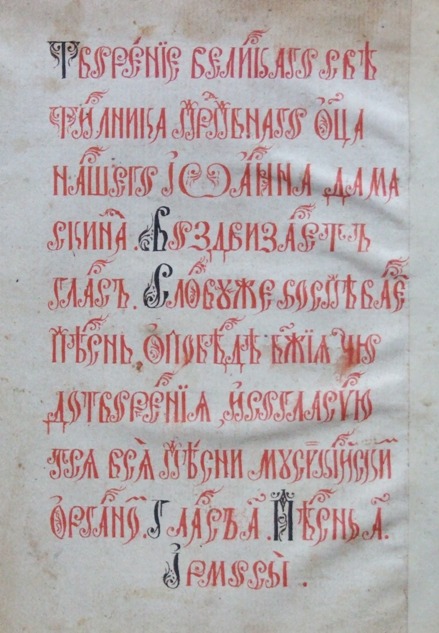 Творе́нїе вели́каго свѣ
ти́лника прпⷣбнаго ѻ҆ц҃а
на́шего і҆ѡа́нна дама
скина̀. Воздвиза́етъ
гла́съ. Сло́вꙋ же воспѣва́е
пѣ́снь, ѡ побѣ́дѣ бж҃їѧ чю
дотворе́нїѧ, и҆ согласꙋ́ю
тсѧ всѧ̀ пѣ́сни мꙋсїкі́йскїи
ѻ҆рга́но. Гла́съ а҃. Пѣ́снь а҃.
І҆рмосы̀.